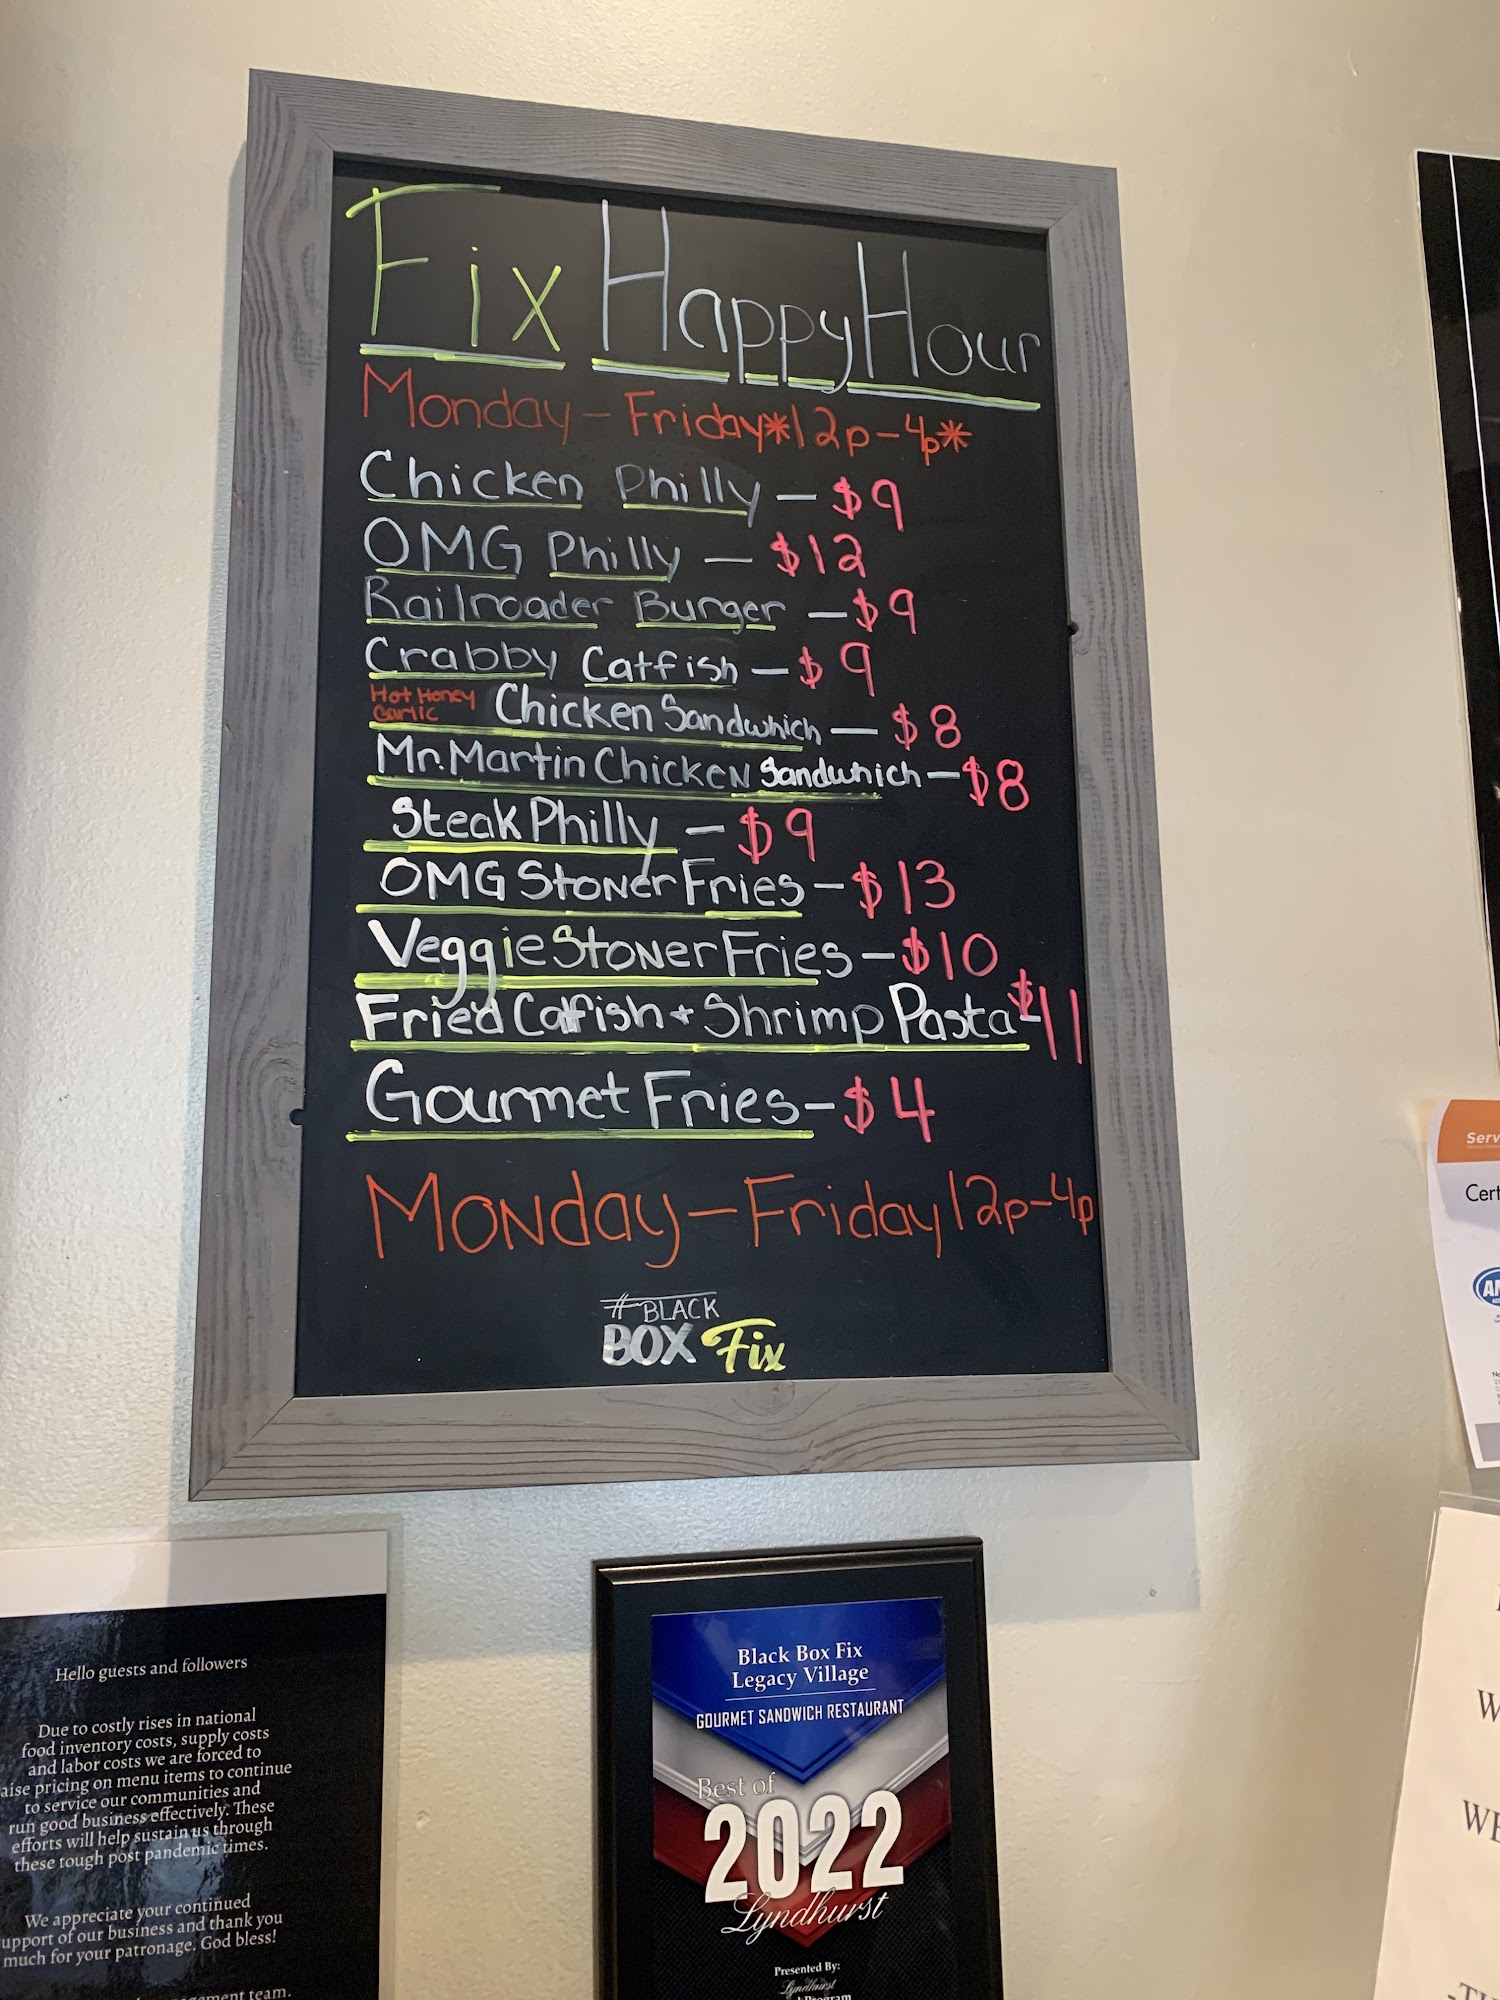 Fix Happy Hour
Monday - Friday *12p-4p*
Chicken Philly - $9
OMG Philly - $12
Railroader Burger - $9
Crabby Catfish - $9
Hot Honey Garlic Chicken Sandwhich - $8
Mr. Martin Chicken Sandwhich - $8
Steak Philly - $9
OMG Stoner Fries - $13
Veggie Stoner Fries - $10
Fried Catfish + Shrimp Pasta - $11
Gourmet Fries - $4
Monday - Friday 12p-4p
#BLACK
BOX Fix
Hello guests and followers
Due to costly rises in national
food inventory costs, supply costs
and labor costs we are forced to
aise pricing on menu items to continue
to service our communities and
run good business effectively. These
efforts will help sustain us through
these tough post pandemic times.
We appreciate your continued
upport of our business and thank you
much for your patronage. God bless!
team.
Black Box Fix
Legacy Village
GOURMET SANDWICH RESTAURANT
Best of
2022
Lyndhurst
Presented By:
Lyndhurst
Program
Serv
Cert